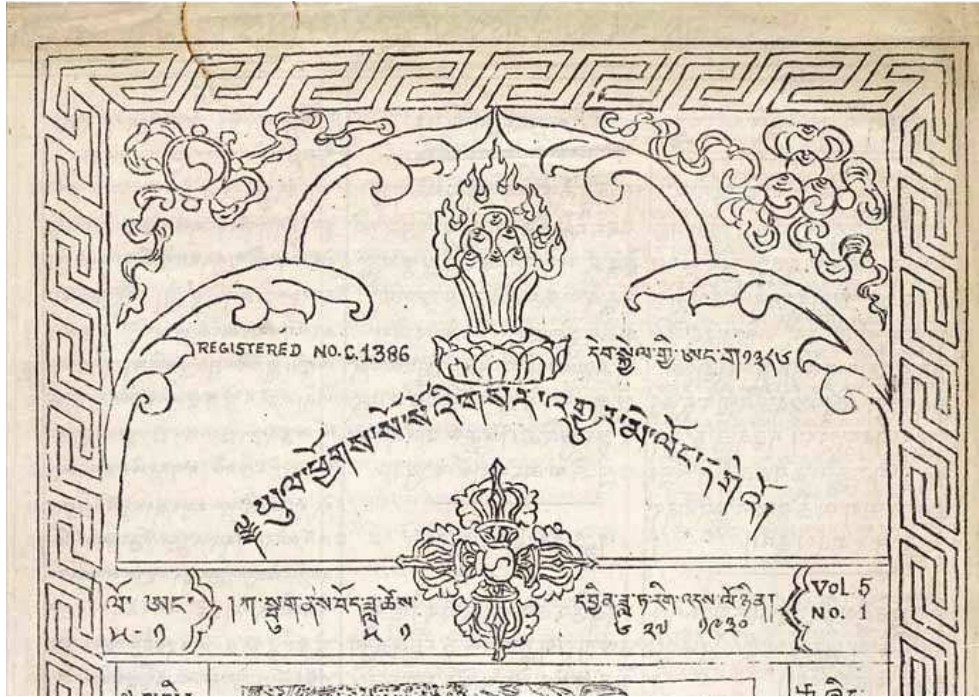 REGISTERED NO. C. 1386
དེབ་སྐྱེལ་གྱི་ཨང་ག༡༣༨༦
ཡུལ་ཕྱོགས་སོ་སོའི་གསར་འགྱུར་མེ་ལོང་
ལོ་ ཨང་
༥-༡
།ཀ་སྦུག་ནས་བོད་ཟླ་ཚེས་
༥ ༡
དབྱིན་ཟླ་ཏ་རིག་འདས་ལོ་ཉིན།
༦ ༢༧ ༡༩༣༠
VOL. 5
NO. 1